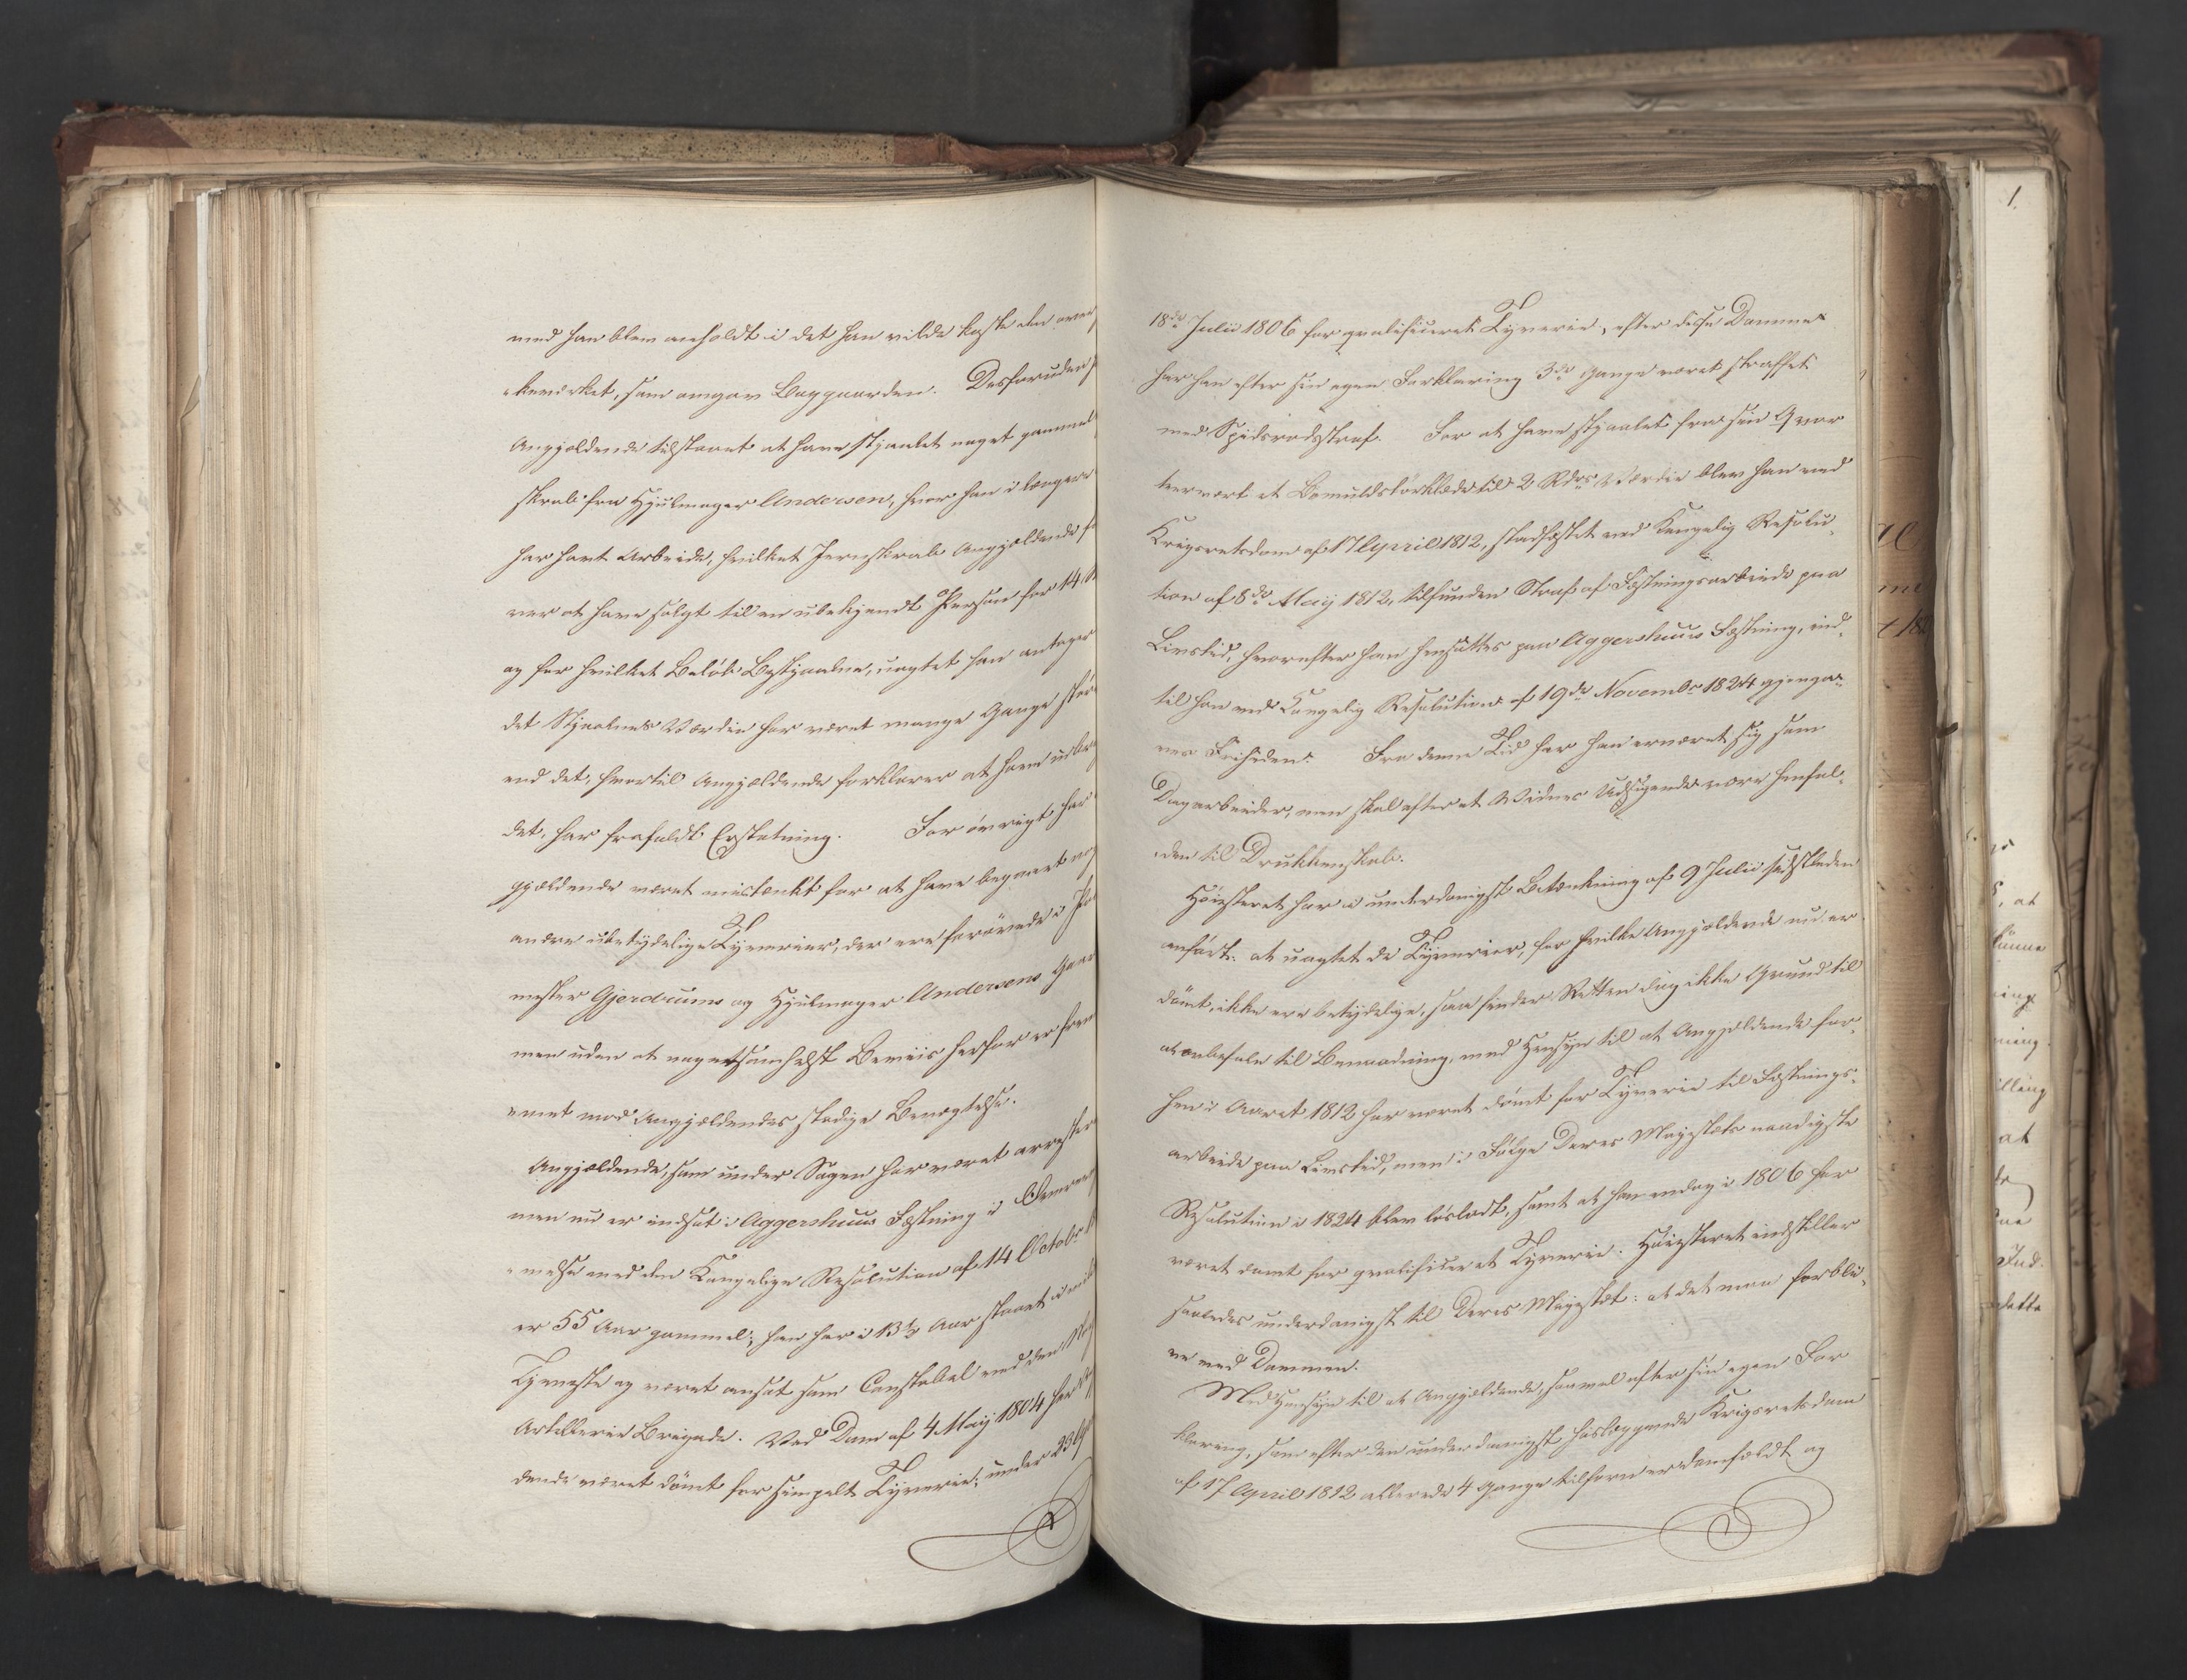 med han blev anholdt i det han vilde kaste den over
kværket, som omgav Baggaarden. Desforuden
Angjældende tilstaaet at have stjaalet noget gammel
skrab fra Hjulmager Andersen, hvor han i længere
har havt Arbeide, hvilket Jernskrab Angjældende
ver at have solgt til en ubekjendt Person for 14
og for hvilket Beløb Bestjaalne, uagtet han antager
det Stjaalnes Værdie har været mange Gange stør
end det, hvortil Angjældende forklarer at have udbr
det, har frafaldt Erstatning. For øvrigt har
gjældende været mistænkt for at have begaaet no
andre ubetydelige Tyverier, der ere forøvede i
mester Gjerdrums og Hjulmager Andersens Gaar
men uden at nogetsomhelst Beviis herfor er frem
met mod Angjældendes stadige Benægtelse.
Angjældende, som under Sagen har været arrester
men nu er indsat i Aggershuus Fæstning i Overeens
melse med den Kongelige Resolution af 14 Octobr
er 55 Aar gammel; han har i 13½ Aar staaet i mil
Tjeneste og været ansat som Constabel ved den
Artillerie Brigade. Ved Dom af 4 May 1804 har
dende været dømt for simpelt Tyverie; under 23
18de Julii 1806 for qvalificeret Tyverie, efter disse Domme
har han efter sin egen Forklaring 3de Gange været straffet
med Spidsrodsstraf. For at have stjaalet fra sin Qvar
teervært et Bomuldstørklæde til 2 Rdrs Værdie blev han ved
Krigsretsdom af 17 April 1812, stadfæstet ved Kongelig Resolu
tion af 8de May 1812, tilfunden Straf af Fæstningsarbeide paa
Livstid, hvorefter han hensattes paa Aggershuus Fæstning, ind
til han ved Kongelig Resolution af 19de Novembr 1824 gjengav
ves Friheden. Fra denne Tid har han ernæret sig som
Dagarbeider, men skal efter et Vidnes Udsigende være henfal
den til Drukkenskab.
Høiesteret har i underdanigst Betænkning af 9 Julii sidstleden
anført: at uagtet de Tyverier, for hvilke Angjældende nu er
dømt, ikke ere betydelige, saa finder Retten dog ikke Grund til
at anbefale til Benaadning, med Hensyn til at Angjældende for
hen i Aaret 1812 har været dømt for Tyverie til Fæstnings
arbeide paa Livstid, men i Følge Deres Majestæts naadigste
Resolution i 1824 blev løsladt, samt at han endog i 1806 har
været dømt for qvalificeret Tyverie. Høiesteret indstiller
saaledes underdanigst til Deres Majestæt: at det maa forbli
ve ved Dommen.
Med Hensyn til at Angjældende, saavel efter sin egen For
klaring, som efter den underdanigst hoslæggende Krigsretsdom
af 17 April 1812 allerede 4 Gange tilforn er domfældt og
1.